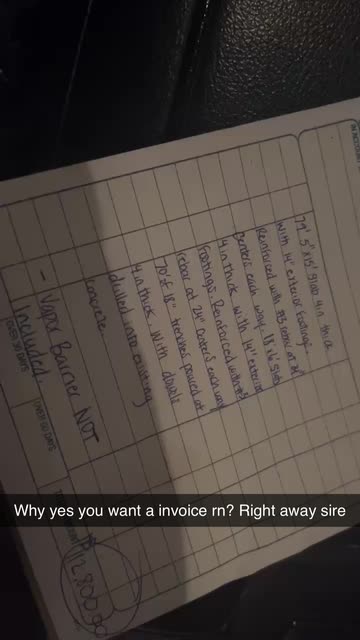 79' 5"x15' slab 4 in thick
with 14" exterior footings.
Reinforced with
centers each way. 18 x16 slab
4 in thick with 14" exterior
footings. Reinforced with
rebar at 24" centers each way
70' of 18" trenches poured at
4 in thick. With double
drilled into existing
concrete.
- Vapor Barrier NOT
Included.
OVER 30 DAYS
OVER 60 DAYS
$12,800.00
Why yes you want a invoice rn? Right away sire